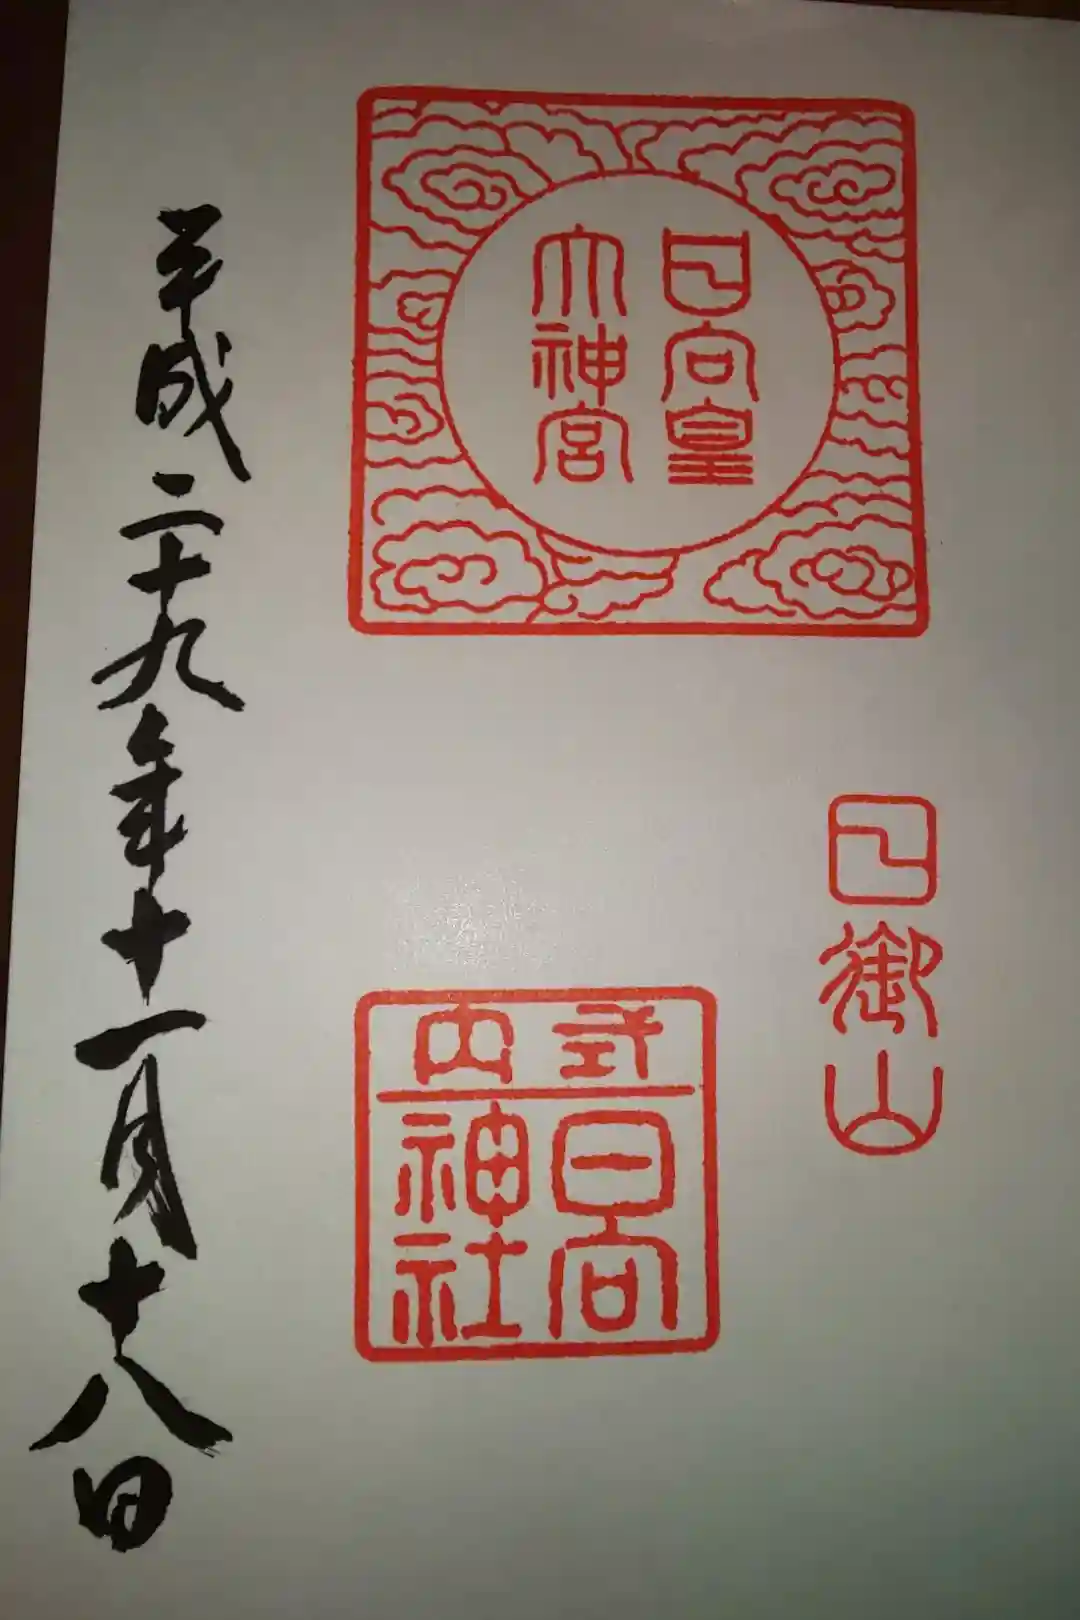 日向皇
大神宮
日御山
式内
日向
神社
平成二十九年十一月十八日